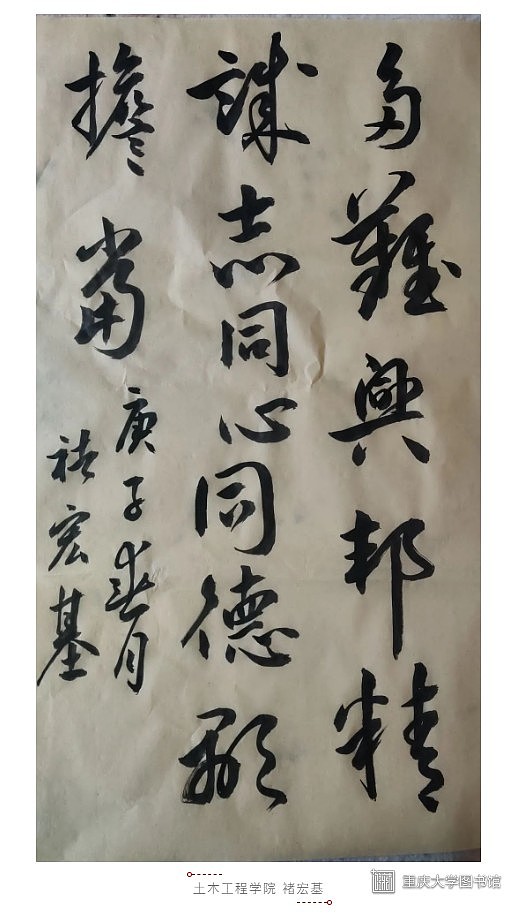 多難興邦精
誠志同心同德顯
擔當
庚子春月
褚宏基
土木工程学院 褚宏基
重庆大学图书馆